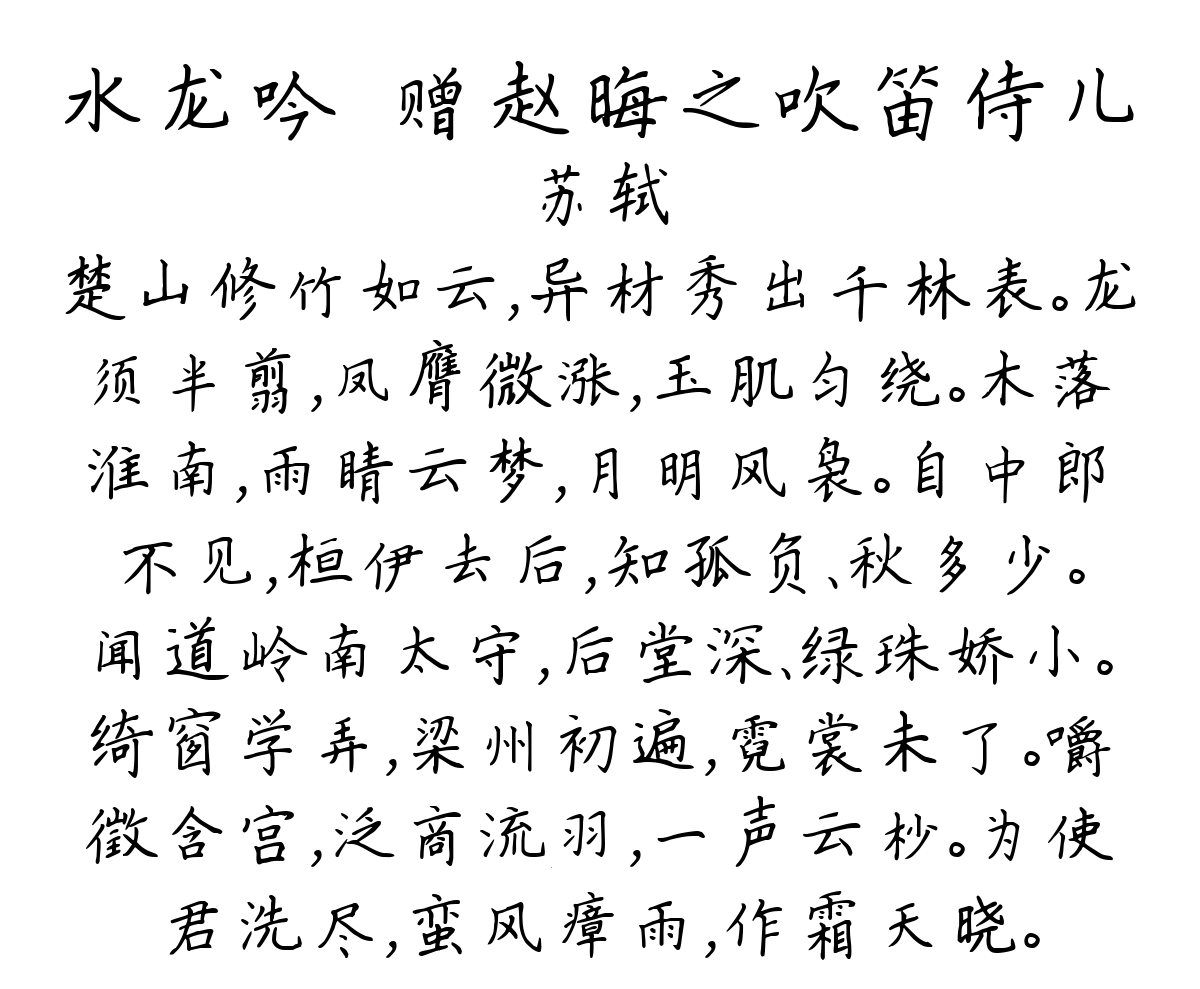 水龙吟 赠赵晦之吹笛侍儿
苏轼
楚山修竹如云,异材秀出千林表。龙
须半翦,凤膺微涨,玉肌匀绕。木落
淮南,雨晴云梦,月明风袅。自中郎
不见,桓伊去后,知孤负、秋多少。
闻道岭南太守,后堂深、绿珠娇小。
绮窗学弄,梁州初遍,霓裳未了。嚼
徵含宫,泛商流羽,一声云杪。为使
君洗尽,蛮风瘴雨,作霜天晓。